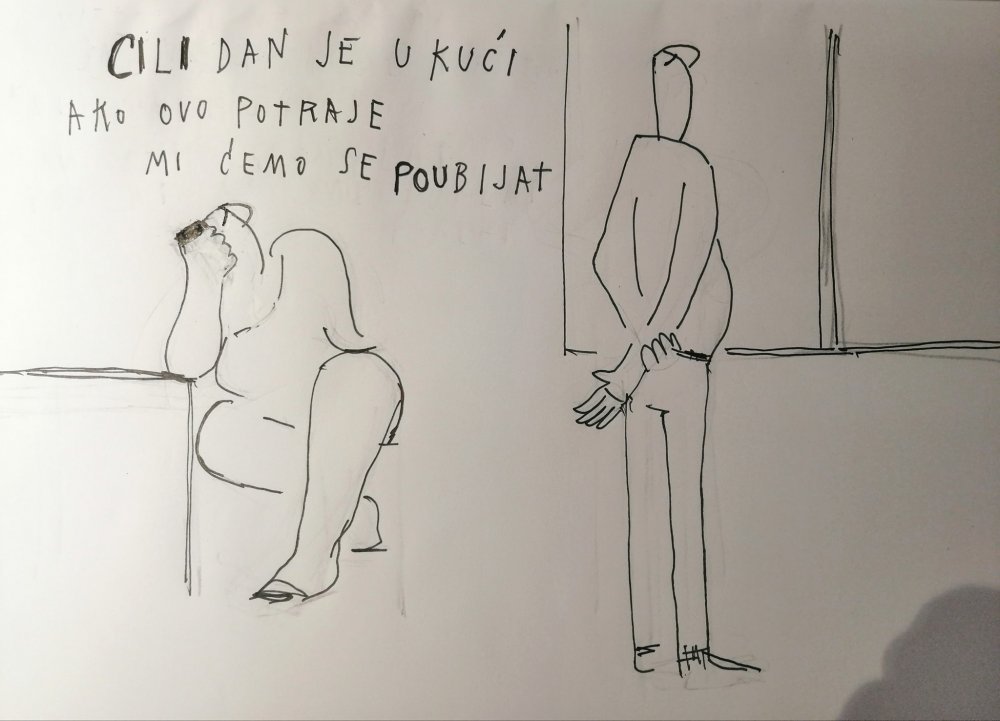 CILI DAN JE U KUĆI
AKO OVO POTRAJE
MI ĆEMO SE POUBIJAT